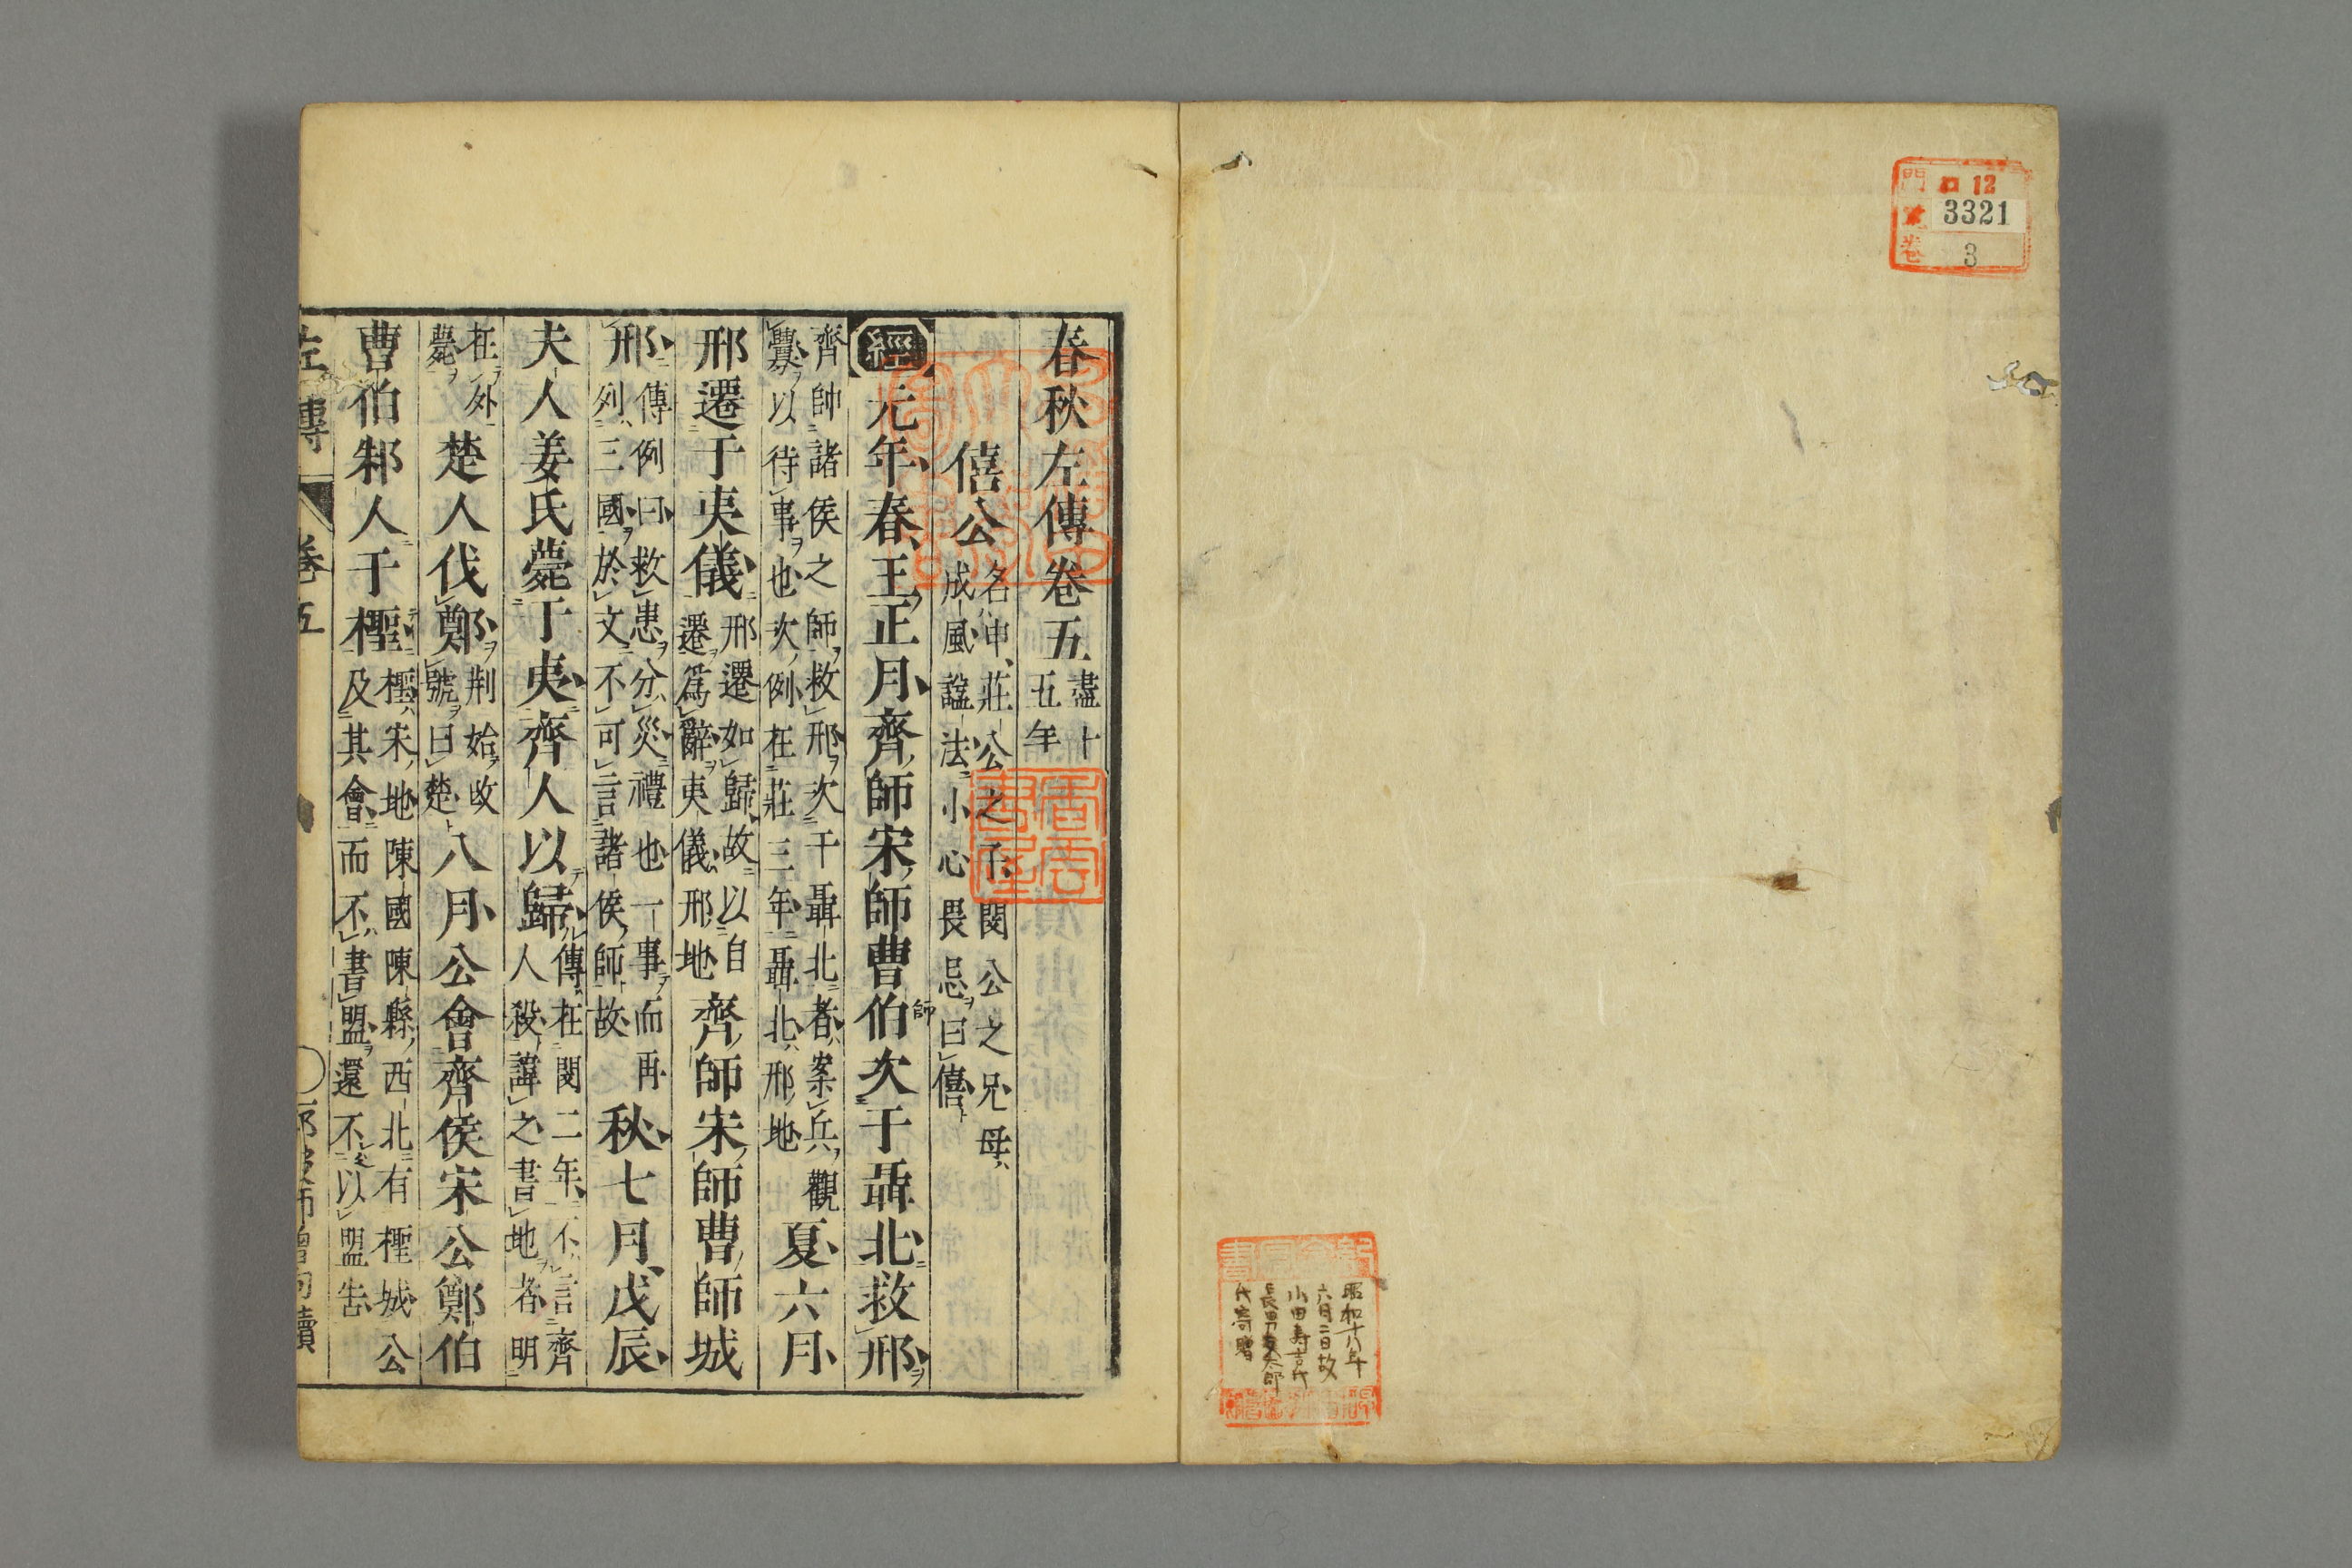 門 ロ 12
號 3321
卷 3
昭和十八年
六月二日故
小田寿吉氏
長男
代寄贈
春秋左傳卷五 盡十五年
僖公 名ハ申、莊公之子、閔公之兄、母ハ成風、諡法ニ小心畏忌ヲ曰僖ト
經 元年春、王正月、齊師宋師曹伯次于聶北、救邢ヲ
師
齊帥諸侯之師、救邢ヲ次于聶北者、案兵、觀釁ヲ以待事ヲ也、次例在莊三年、聶北、邢地 夏六月
邢遷于夷儀 邢遷如歸、故以自遷爲辭、夷儀、邢地 齊師宋師曹師城
邢 傳例曰、救患ヲ分災、禮也、一事而再列三國ヲ、於文不可言諸侯師、故 秋七月、戊辰
夫人姜氏薨于夷、齊人以歸 傳在閔二年、不言齊人殺、諱之、書地者、明
在外薨ヲ 楚人伐鄭ヲ 荆始改號ヲ曰楚ト 八月公會齊侯宋公鄭伯
曹伯邾人于檉 檉ハ宋地、陳國陳縣西北有檉城、公及其會而不書盟ヲ、還不以盟告
左傳 卷五 那波師曾句讀